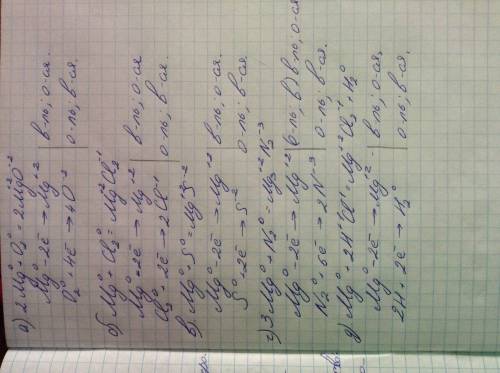 а) 2Mg⁰ + O₂⁰ = 2Mg⁺²O⁻²
Mg⁰ - 2ē → Mg⁺² | в-ль; о-ая
O₂⁰ + 4ē → 2O⁻² | о-ль; в-ая.
б) Mg⁰ + Cl₂⁰ = Mg⁺²Cl₂⁻¹
Mg⁰ - 2ē → Mg⁺² | в-ль; о-ая
Cl₂⁰ + 2ē → 2Cl⁻¹ | о-ль, в-ая.
в) Mg⁰ + S⁰ = Mg⁺²S⁻²
Mg⁰ - 2ē → Mg⁺² | в-ль; о-ая.
S⁰ + 2ē → S⁻² | о-ль; в-ая.
г) 3Mg⁰ + N₂⁰ = Mg₃⁺²N₂⁻³
Mg⁰ - 2ē → Mg⁺² | в-ль, о-ая
N₂⁰ + 6ē → 2N⁻³ | о-ль; в-ая.
д) Mg⁰ + 2H⁺Cl⁻¹ = Mg⁺²Cl₂⁻¹ + H₂⁰
Mg⁰ - 2ē → Mg⁺² | в-ль; о-ая.
2H + 2ē → H₂⁰ | о-ль, в-ая.